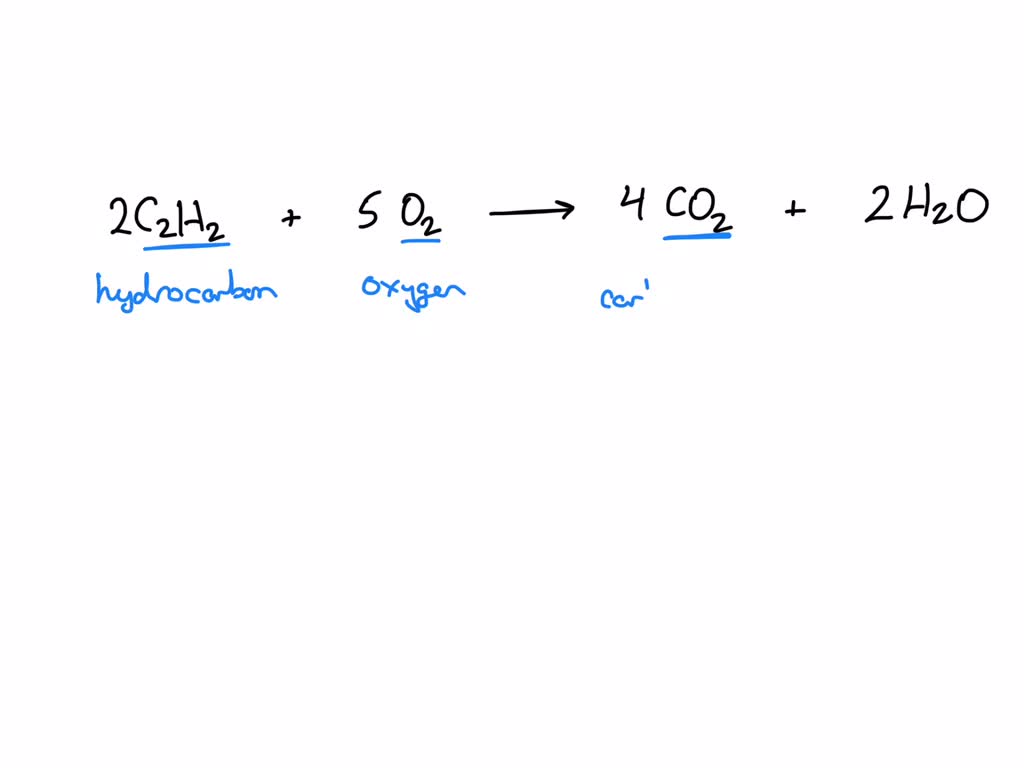 2C₂H₂ + 5 O₂ → 4 CO₂ + 2H₂O
hydrocarbon oxygen car